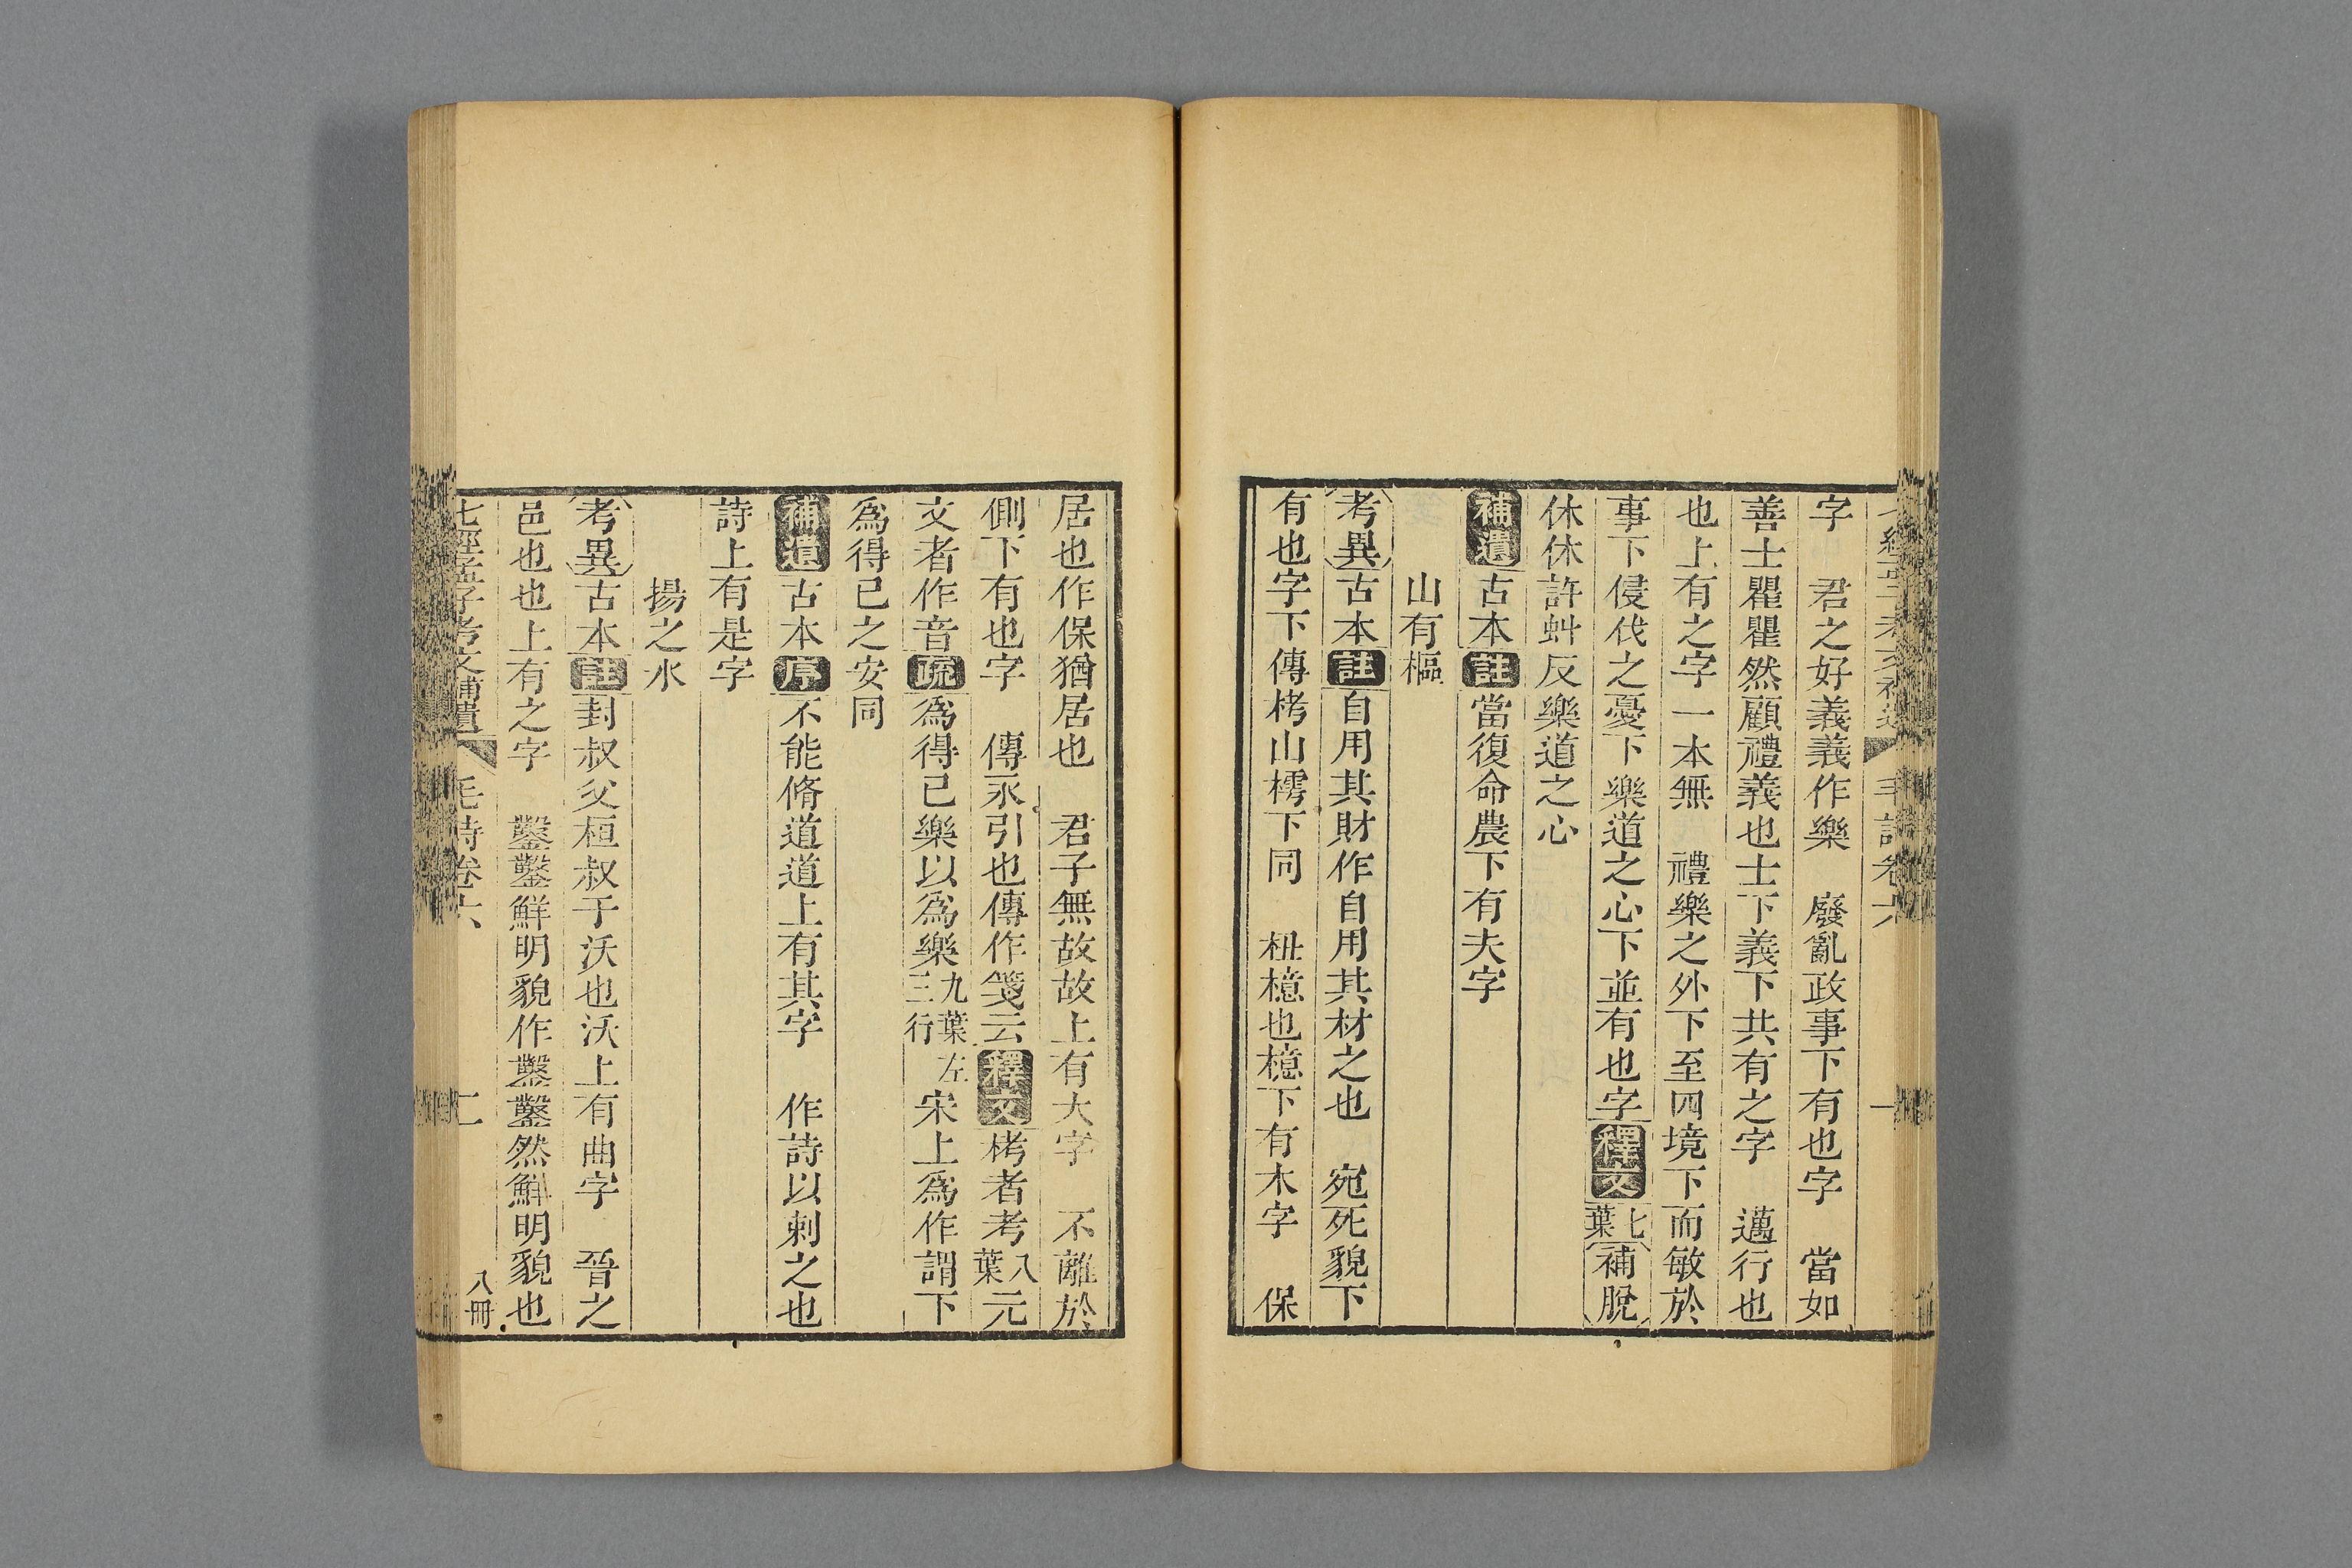 字　君之好義義作樂　廢亂政事下有也字　當如
善士瞿瞿然顧禮義也士下義下共有之字　邁行也
也上有之字一本無　禮樂之外下至四境下而敏於
事下侵伐之憂下樂道之心下並有也字釋文七葉補脫
休休許虯反樂道之心
補遺古本註當復命農下有夫字
山有樞
考異古本註自用其財作自用其材之也　宛死貌下
有也字下傳栲山樗下同　杻檍也檍下有木字　保
居也作保猶居也　君子無故故上有大字　不離於
側下有也字　傳永引也傳作箋云釋文栲者考八葉元
文者作音疏為得已樂以為樂九葉左三行宋上為作謂下
為得已之安同
補遺古本序不能脩道道上有其字　作詩以刺之也
詩上有是字
揚之水
考異古本註封叔父桓叔于沃也沃上有曲字　晉之
邑也也上有之字　鑿鑿鮮明貌作鑿鑿然鮮明貌也
七經孟子考文補遺　毛詩卷六　二　八冊